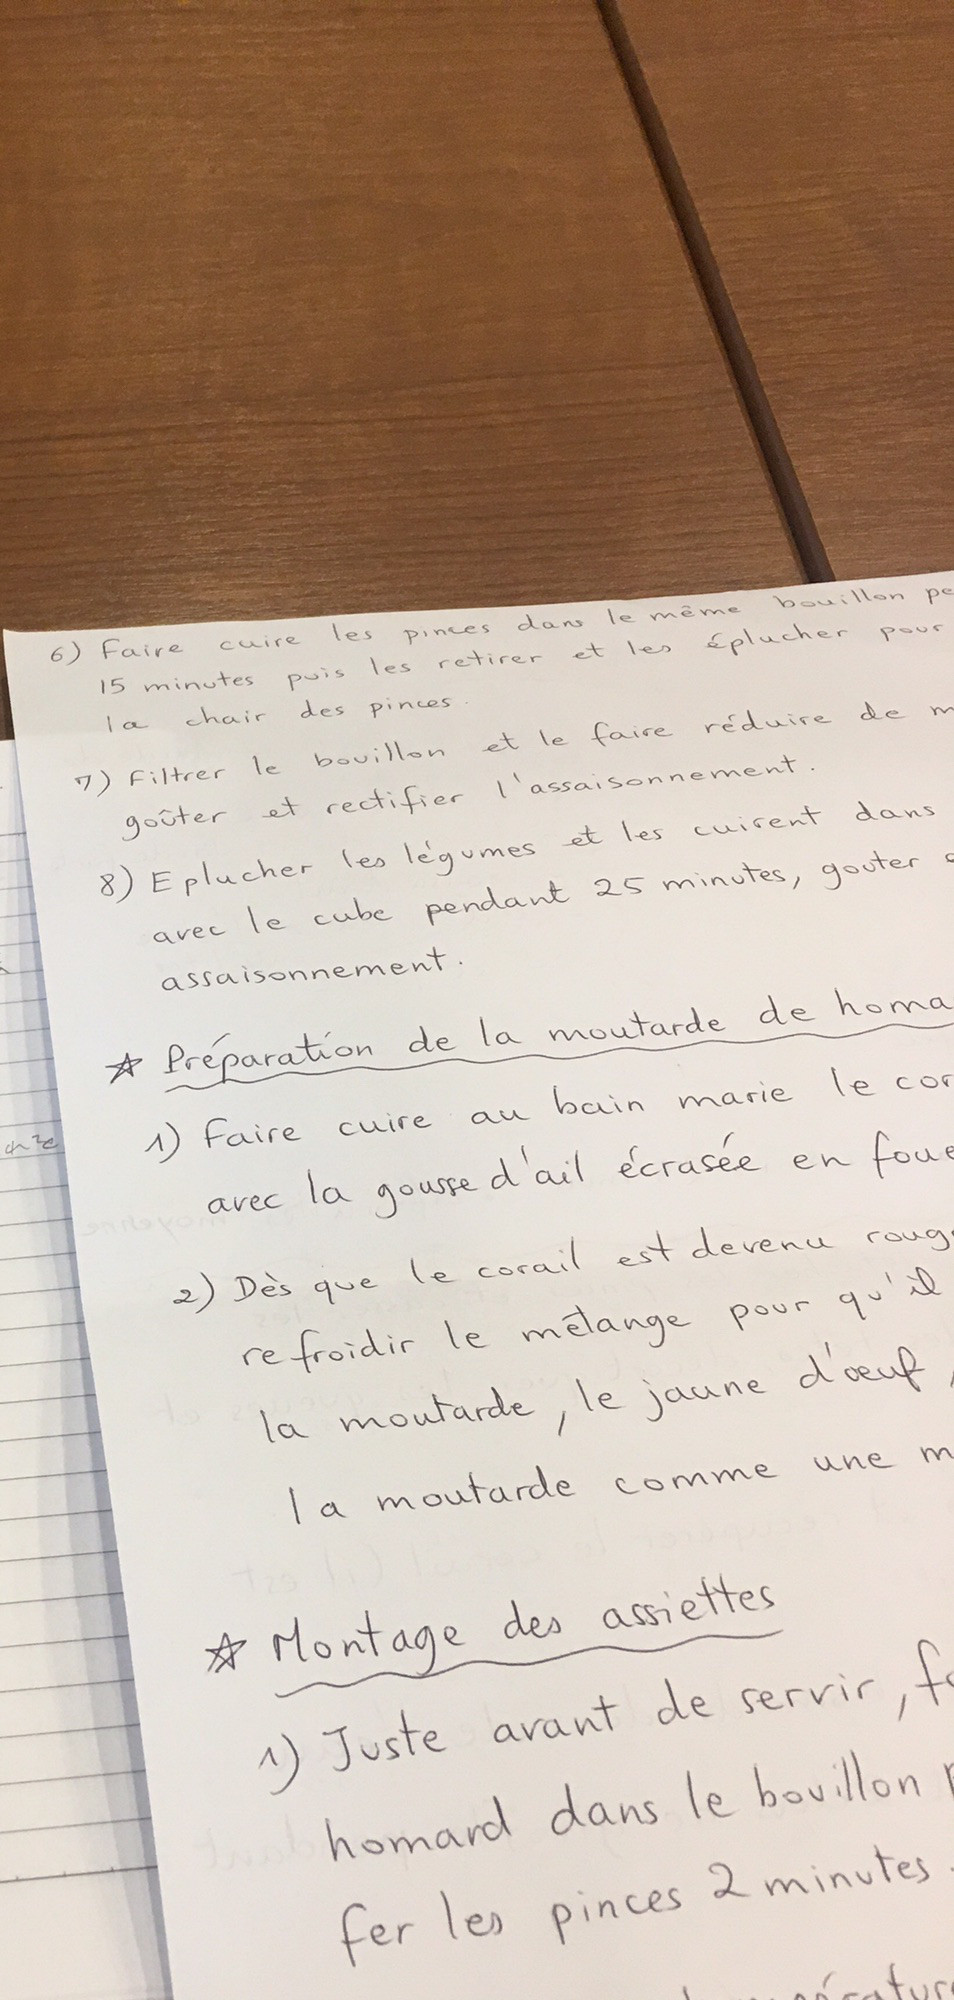 6) Faire cuire les pinces dans le même bouillon pe
15 minutes puis les retirer et les éplucher pour
la chair des pinces.
7) Filtrer le bouillon et le faire réduire de m
goûter et rectifier l'assaisonnement.
8) Eplucher les légumes et les cuirent dans
avec le cube pendant 25 minutes, gouter
assaisonnement.
☆ Préparation de la moutarde de homa
1) Faire cuire au bain marie le cor
avec la gousse d'ail écrasée en foue
2) Dès que le corail est devenu roug
refroidir le mélange pour qu'il
la moutarde, le jaune d'œuf,
la moutarde comme une m
☆ Montage des assiettes
1) Juste avant de servir, fa
homard dans le bouillon p
fer les pinces 2 minutes.